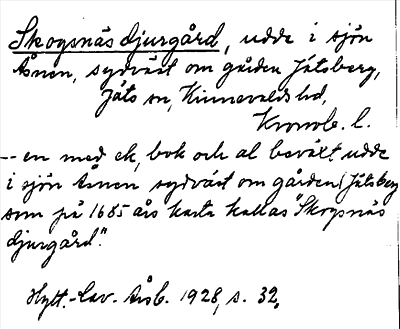 Skogsnäs djurgård, udde i sjön
Åsnen, sydväst om gården Jätsberg,
Jäts sn, Kinnevalds hd,
Kronob. l.
-- en med ek, bok och al beväxt udde
i sjön Åsnen sydväst om gården Jätsberg
som på 1685 års karta kallas "Skogsnäs
djurgård".
Hylt.-Cav. Årsb. 1928, s. 32.